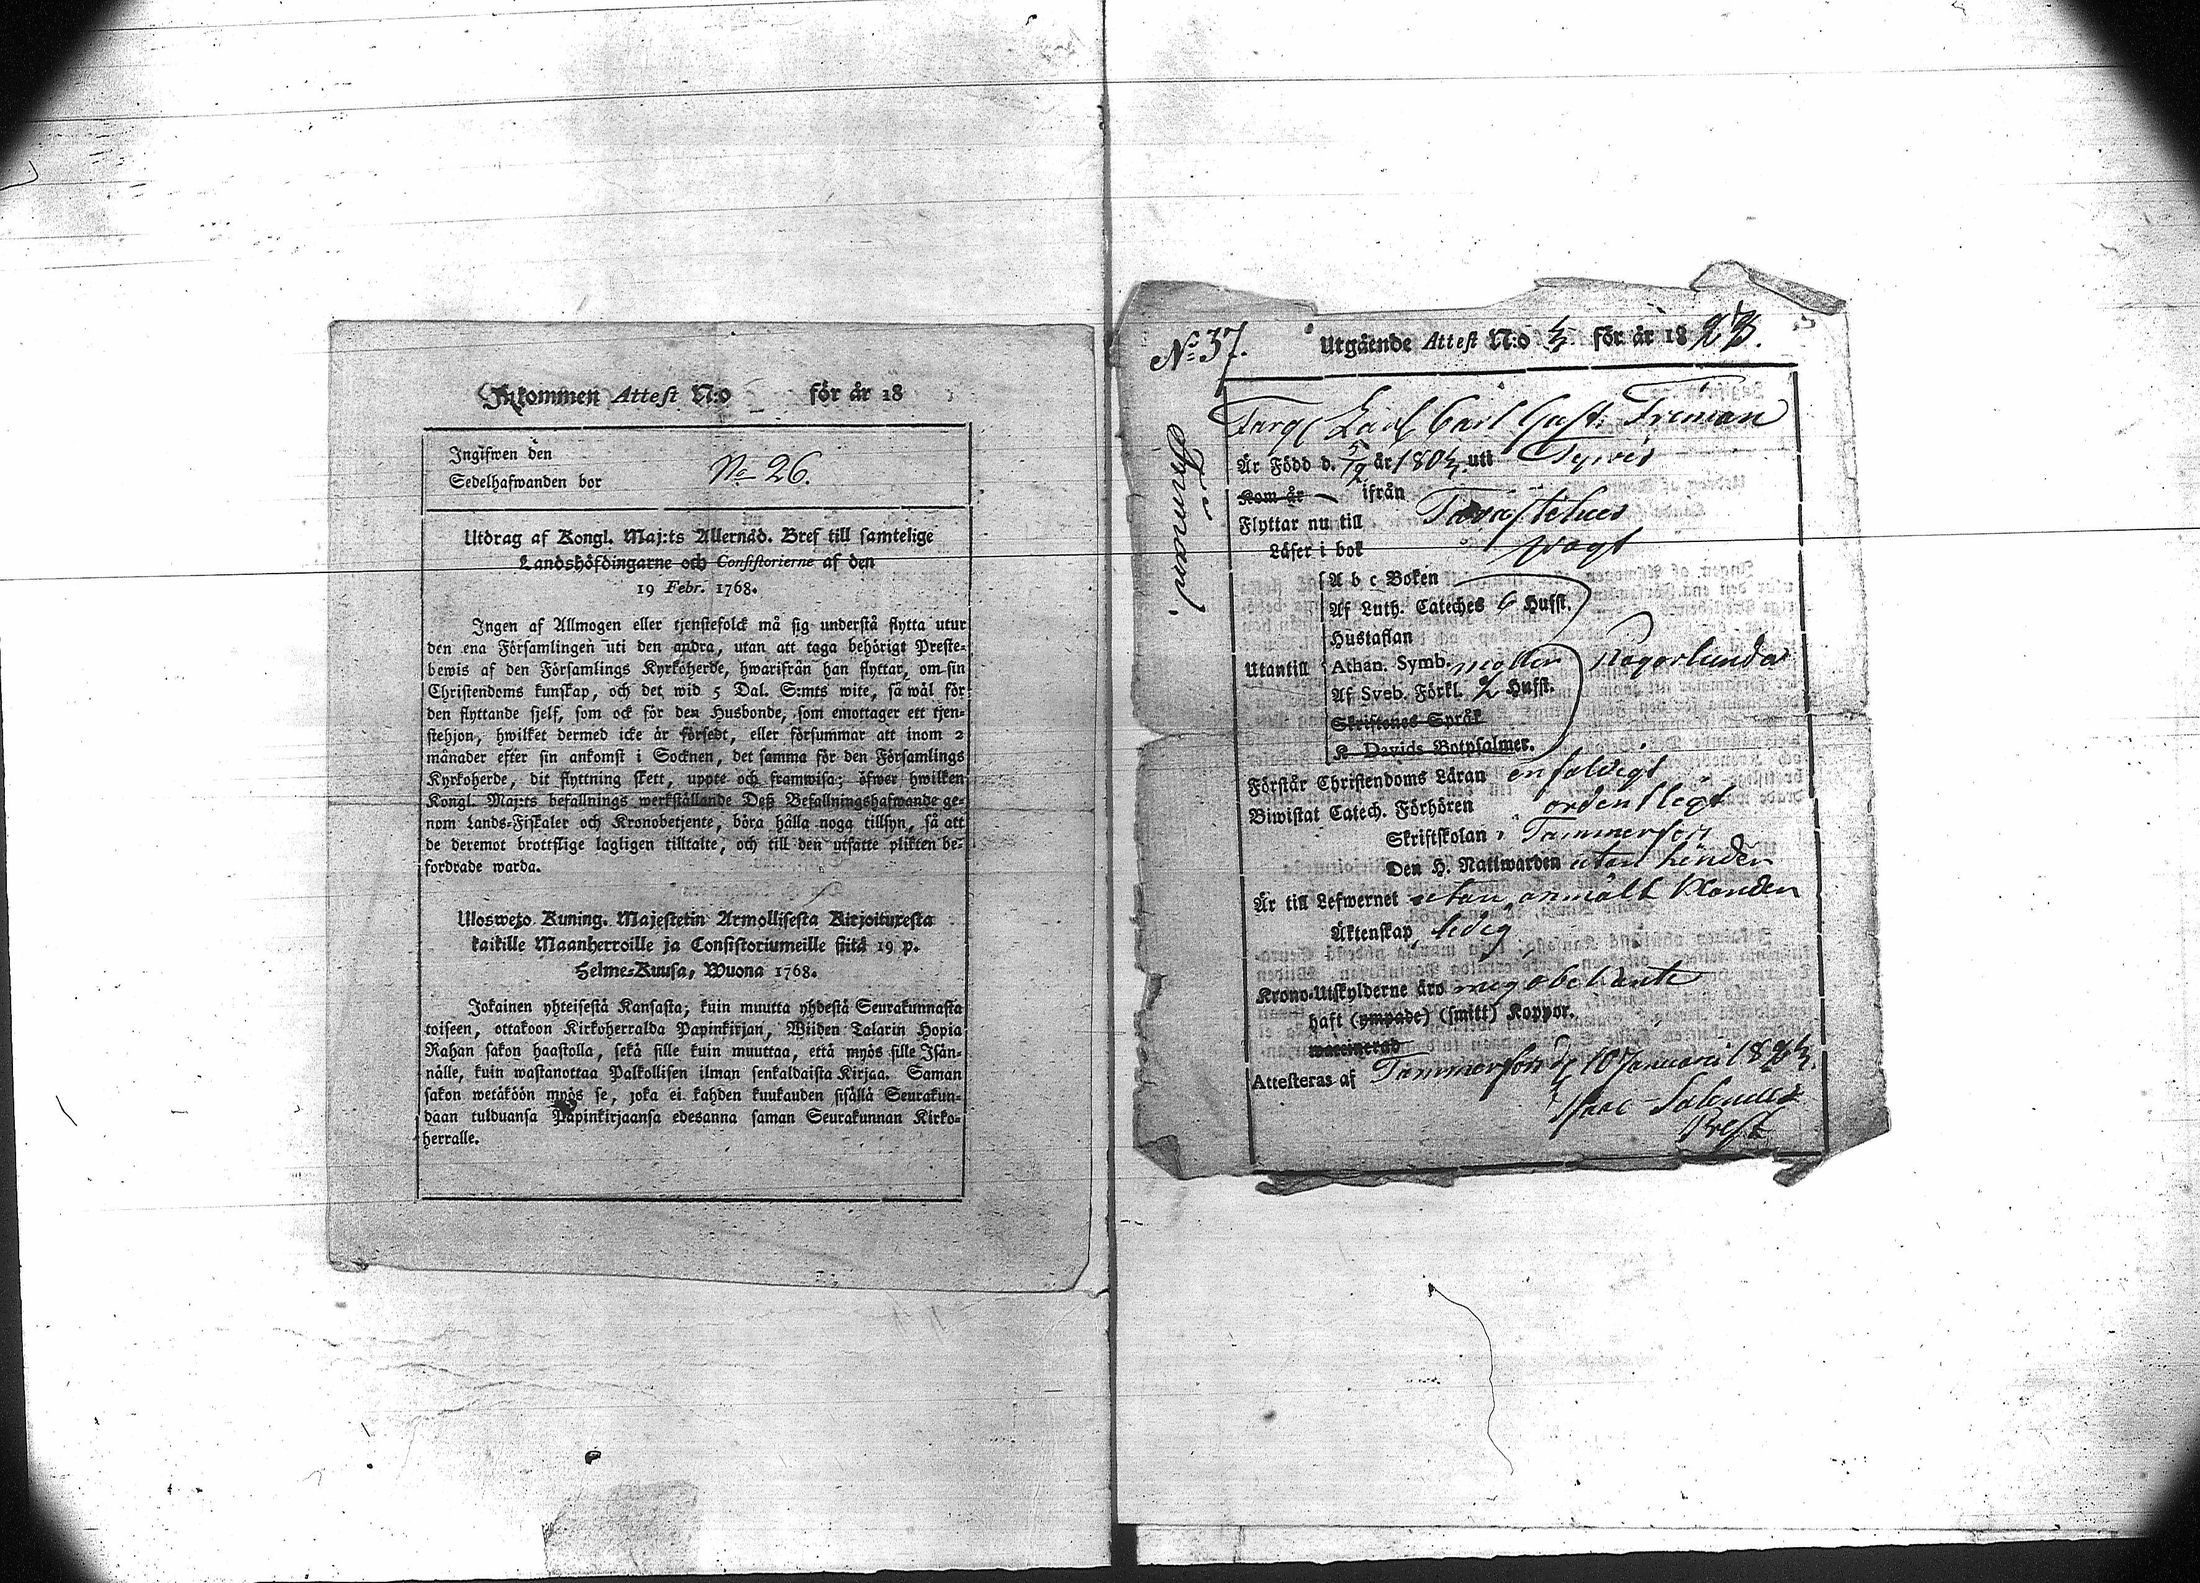 Inkommen Attest N:o för år 18
Ingifwen den
Sedelhafwanden bor
No 26.
Utdrag af Kongl. Maj:ts Allernåd. Bref till samtelige
Landshöfdingarne och Consistorierne af den
19 Febr. 1768.
Ingen af Allmogen eller tjenstefolck må sig understå flytta utur
den ena Församlingen uti den andra, utan att taga behörigt Preste-
bewis af den Församlings Kyrkoherde, hwarifrån han flyttar, om sin
Christendoms kunskap, och det wid 5 Dal. S:mts wite, så wäl för
den flyttande sjelf, som ock för den Husbonde, som emottager ett tjen-
stehjon, hwilket dermed icke är försedt, eller försummar att inom 2
månader efter sin ankomst i Socknen, det samma för den Församlings
Kyrkoherde, dit flyttning skett, uppte och framwisa; öfwer hwilken
Kongl. Maj:ts befallnings werkställande Deß Befallningshafwande ge-
nom Lands-Fiskaler och Kronobetjente, böra hålla noga tillsyn, så att
de deremot brottslige lagligen tilltalte, och till den utsatte plikten be-
fordrade warda.
Ulosweto Kuning. Majestetin Armollisesta Kirjoituxesta
kaikille Maanherroille ja Consistoriumeille siitä 19 p.
Helme-Kuusa, Wuona 1768.
Jokainen yhteisestä Kansasta; kuin muutta yhdestä Seurakunnasta
toiseen, ottakoon Kirkoherralda Papinkirjan, Wiiden Talarin Hopia
Rahan sakon haastolla, sekä sille kuin muuttaa, että myös sille Isän-
nälle, kuin wastanottaa Palkollisen ilman senkaldaista Kirjaa. Saman
sakon wetäköön myös se, joka ei kahden kuukauden sisällä Seurakun-
daan tulduansa Papinkirjaansa edesanna saman Seurakunnan Kirko-
herralle.
No 37.
Utgående Attest N:o för år 18 23.
Carl Gust. Freman
Är Född d. 5/9 år uti Tyrvis
Kom år ifrån
Flyttar nu till Tavastehus
Läser i bok svagt
A b c Boken
Af Luth. Cateches 6 Hufst.
Hustaflan
Utantill Athan. Symb.
Af Sveb. Förkl. 2 Hufst.
Skriftenes Språk
K Davids Botpsalmer.
Förstår Christendoms Läran enfaldigt
Biwistat Catech. Förhören ordentligt
Skriftskolan i Tammerfors
Den H. Nattwarden utan hinder
Är till Lefwernet utan anmält klander
Äktenskap ledig
Krono-Utskylderne äro
haft (ympade) (smitt) Koppor.
waccinerad
Attesteras af Tammerfors d. 10 Januari